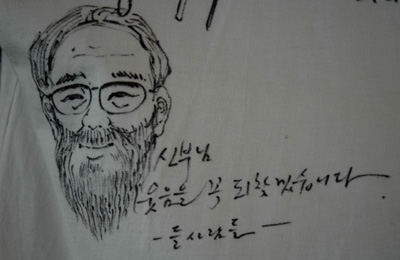 신부님
웃음을 꼭 되찾겠습니다
- 들사람들 -